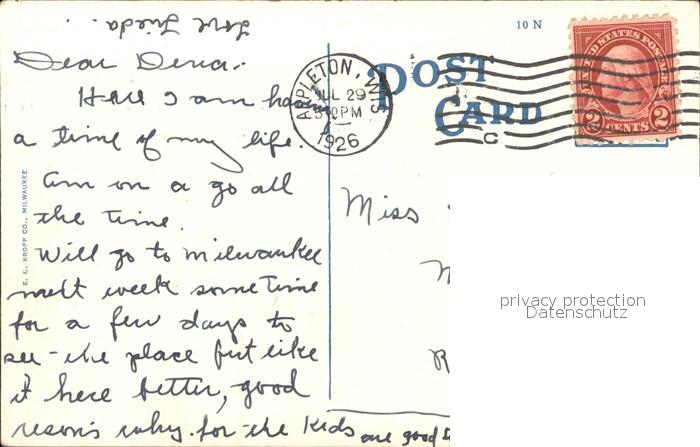 Love Frieda.
10 N
POST
CARD
APPLETON, WIS
JUL 29
5 30 PM
1926
C
UNITED STATES POSTAGE
2 CENTS 2
Dear Dena.
Here I am having
a time of my life.
Am on a go all
the time.
Will go to Milwaukee
next week some time
for a few days to
see the place but like
it here better, good
reasons why. for the kids are good
E. C. KROPP CO., MILWAUKEE
Miss
privacy protection
Datenschutz